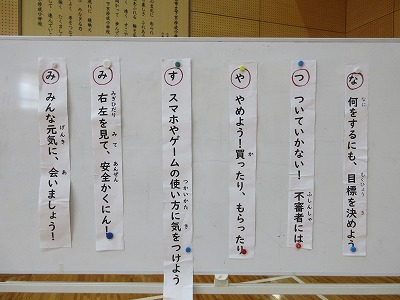 な 何をするにも、目標を決めよう
つ ついていかない！ 不審者には
や やめよう！買ったり、もらったり
す スマホやゲームの使い方に気をつけよう
み 右左を見て、安全かくにん！
み みんな元気に、会いましょう！